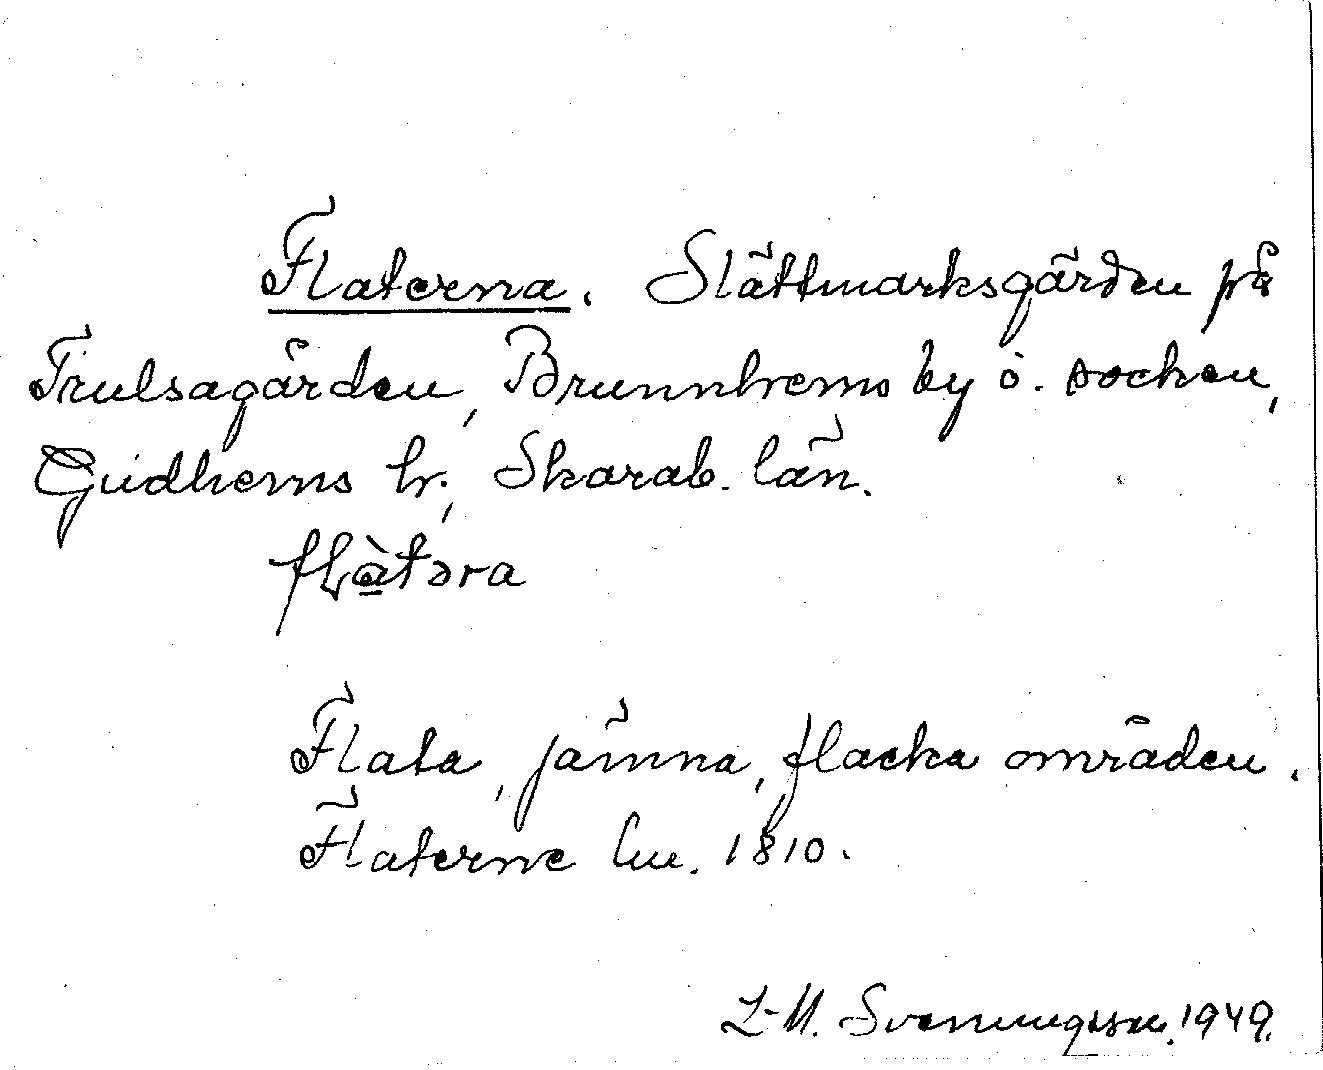 Flaterna. Slättmarksgärden på
Trulsagården, Brunnhems by o. socken,
Gudhems hr, Skarab. län.
fḷàtəra
Flata, jämna, flacka områden.
Flaterne Lm. 1810.
L-M. Svenungsson. 1949.